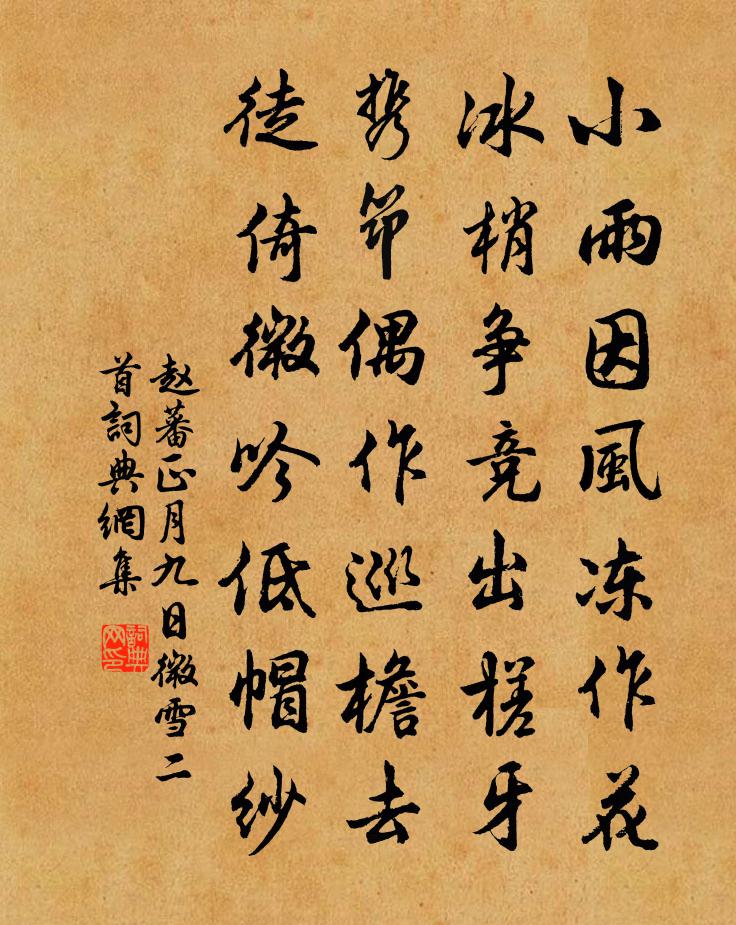 小雨因風冻作花
冰梢争竞出槎牙
携筇偶作巡檐去
徒倚微吟低帽纱
赵蕃正月九日微雪二
首詞典網集
詞典
网印